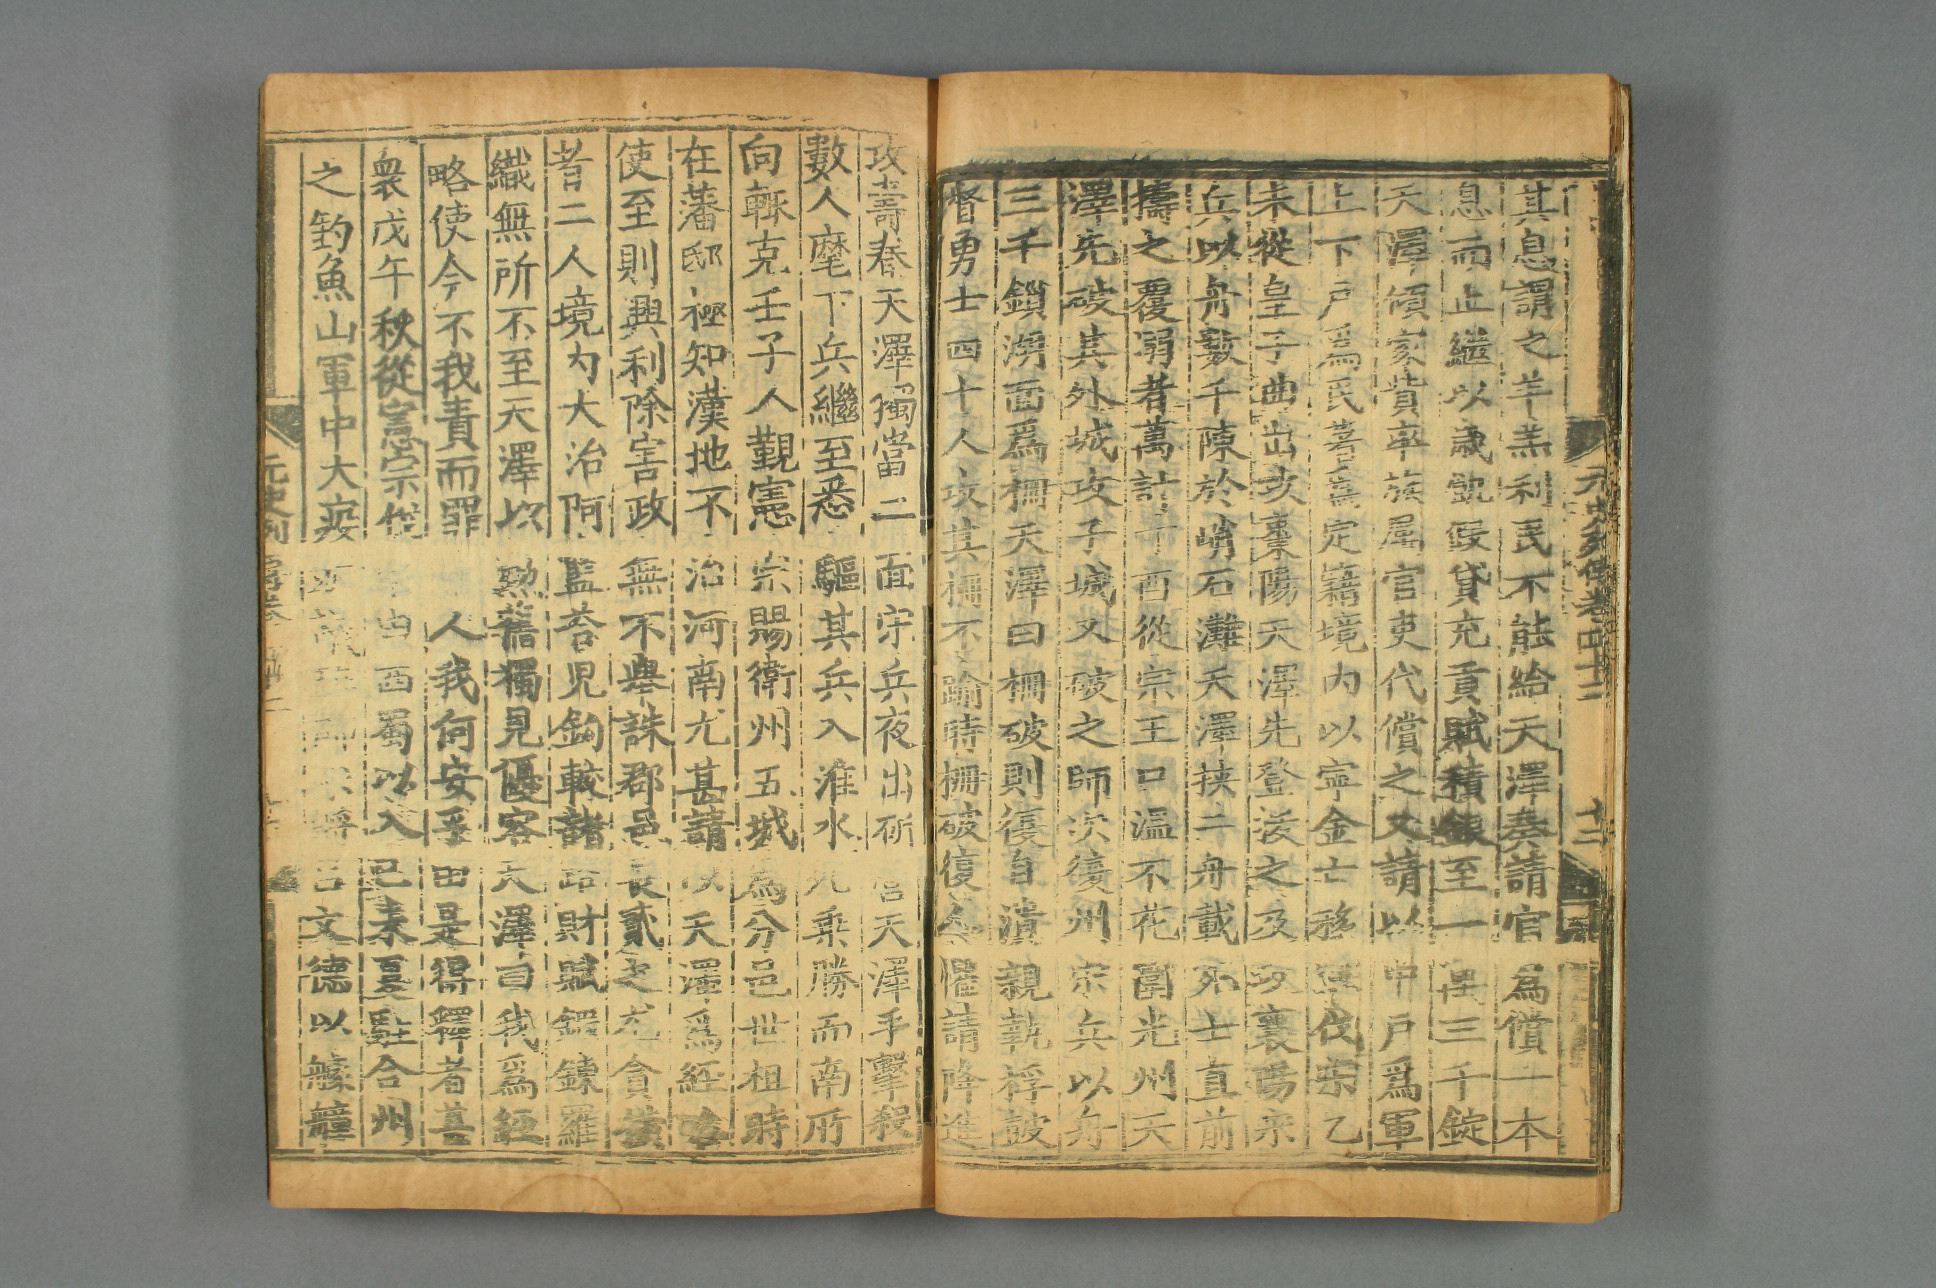 元史列傳卷四十二
十二
其息謂之羊羔利民不能給天澤奏請官爲償一本
息而止繼以歲飢假貸充貢賦積銀至一萬三千錠
天澤傾家貲率族属官吏代償之又請以中戶爲軍
上下戶爲民著爲定籍境内以寧金亡移軍伐宋乙
未從皇子曲出攻棗陽天澤先登拔之及攻襄陽宋
兵以舟數千陳於峭石灘天澤挾二舟載死士直前
擣之覆溺者萬計丁酉從宗王口温不花圍光州天
澤先破其外城攻子城又破之師次復州宋兵以舟
三千鎖湖面爲柵天澤曰柵破則復自潰親執桴鼓
督勇士四十人攻其柵不踰時柵破復人懼請降進
攻壽春天澤獨當一面宋兵夜出斫營天澤手擊殺
數人麾下兵繼至悉驅其兵入淮水乃乘勝而南所
向輒克壬子入觀憲宗賜衛州五城爲分邑世祖時
在藩邸極知漢地不治河南尤甚請以天澤爲經略
使至則興利除害政無不舉誅郡邑長貳之尤貪橫
者二人境内大治阿藍荅児鈎較諸路財賦鍛鍊羅
織無所不至天澤以勲舊獨見優容天澤曰我爲經
略使今不我責而罪人我何安乎由是得釋者甚
衆戊午秋從憲宗伐由西蜀以入己未夏駐合州
之釣魚山軍中大疫文德以艨艟